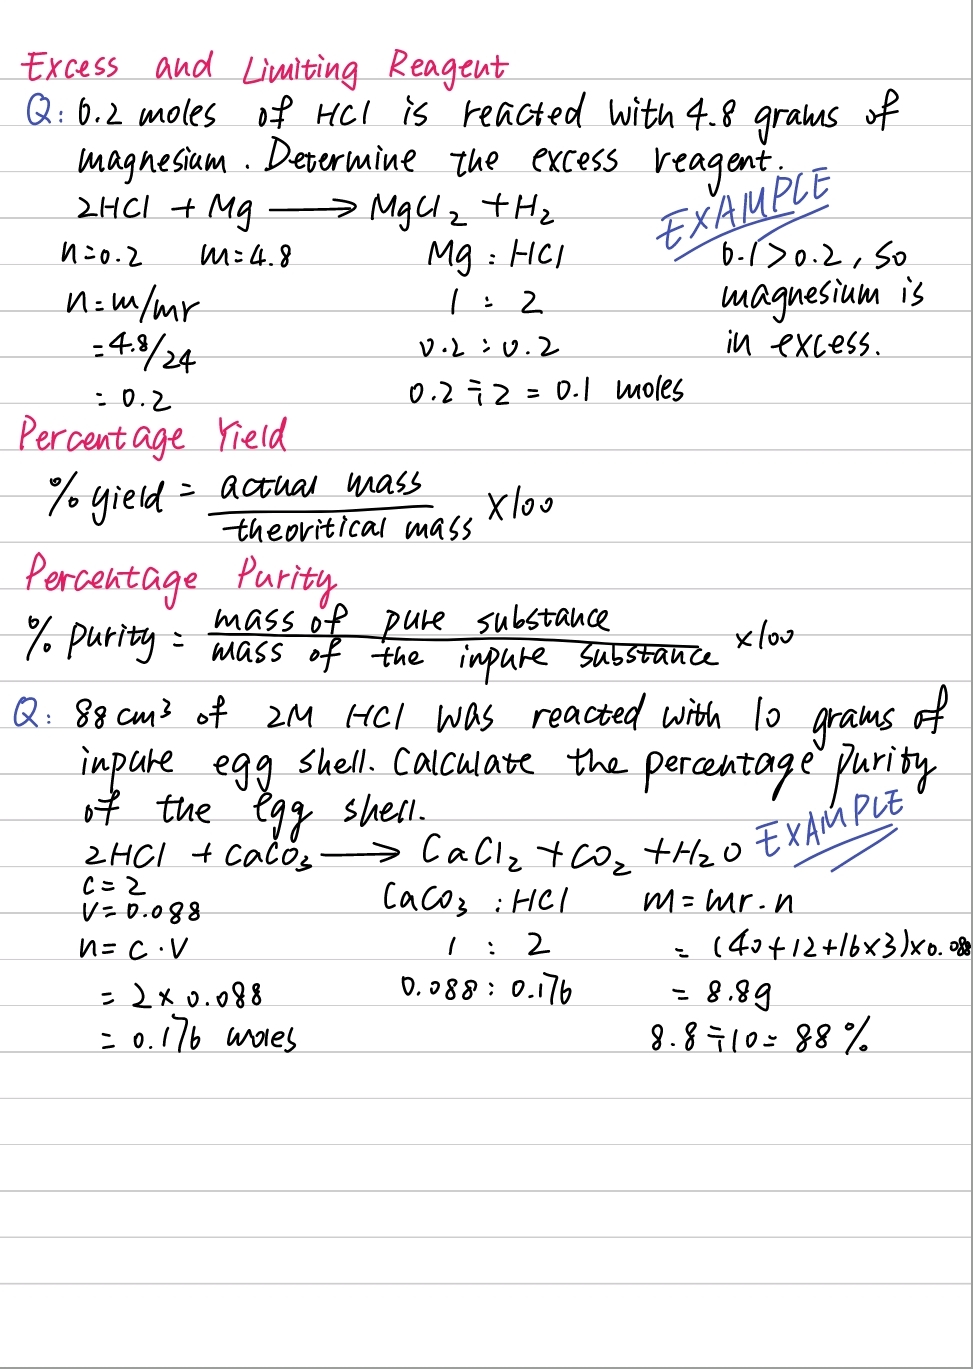 Excess and Limiting Reagent
Q: 0.2 moles of HCl is reacted with 4.8 grams of
magnesium. Determine the excess reagent.
2HCl + Mg ⟶ MgCl₂ + H₂
EXAMPLE
n=0.2 m=4.8 Mg : HCl 0.1>0.2, so
n=m/mr 1 : 2 magnesium is
=4.8/24 0.2 : 0.2 in excess.
= 0.2 0.2 ÷ 2 = 0.1 moles
Percentage Yield
% yield = actual mass / theoritical mass ×100
Percentage Purity
% purity = mass of pure substance / mass of the inpure substance ×100
Q: 88 cm³ of 2M HCl was reacted with 10 grams of
inpure egg shell. Calculate the percentage purity
of the egg shell.
EXAMPLE
2HCl + CaCO₃ ⟶ CaCl₂ + CO₂ + H₂O
C=2
V=0.088 CaCO₃ : HCl m=mr·n
n= C·V 1 : 2 = (40+12+16×3)×0.088
= 2×0.088 0.088 : 0.176 = 8.8g
= 0.176 moles 8.8÷10= 88%